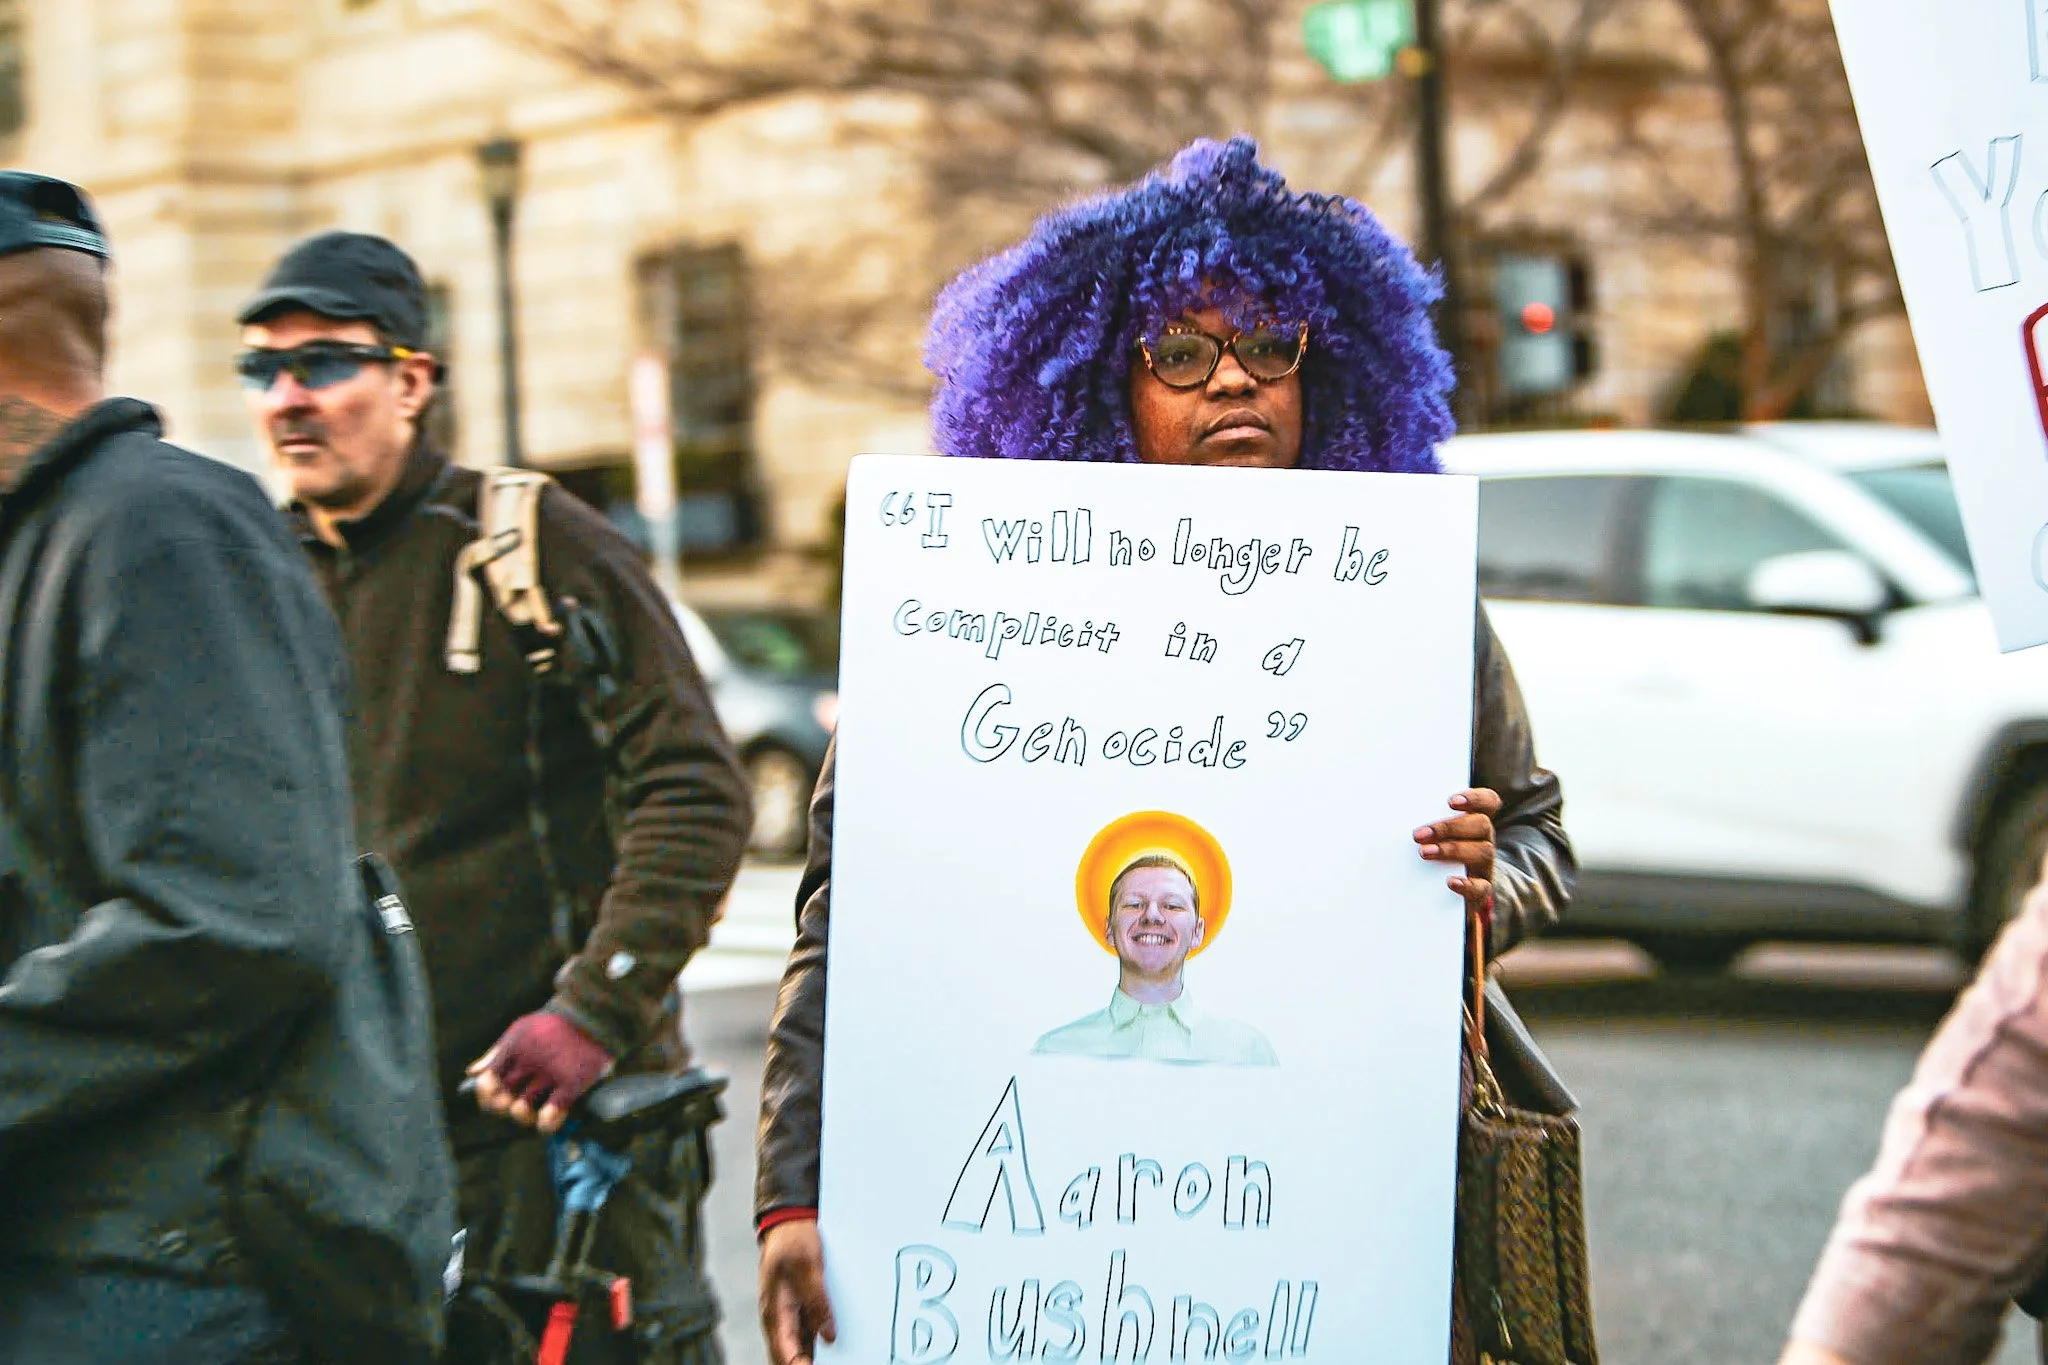 “I will no longer be
complicit in a
Genocide”
Aaron
Bushnell